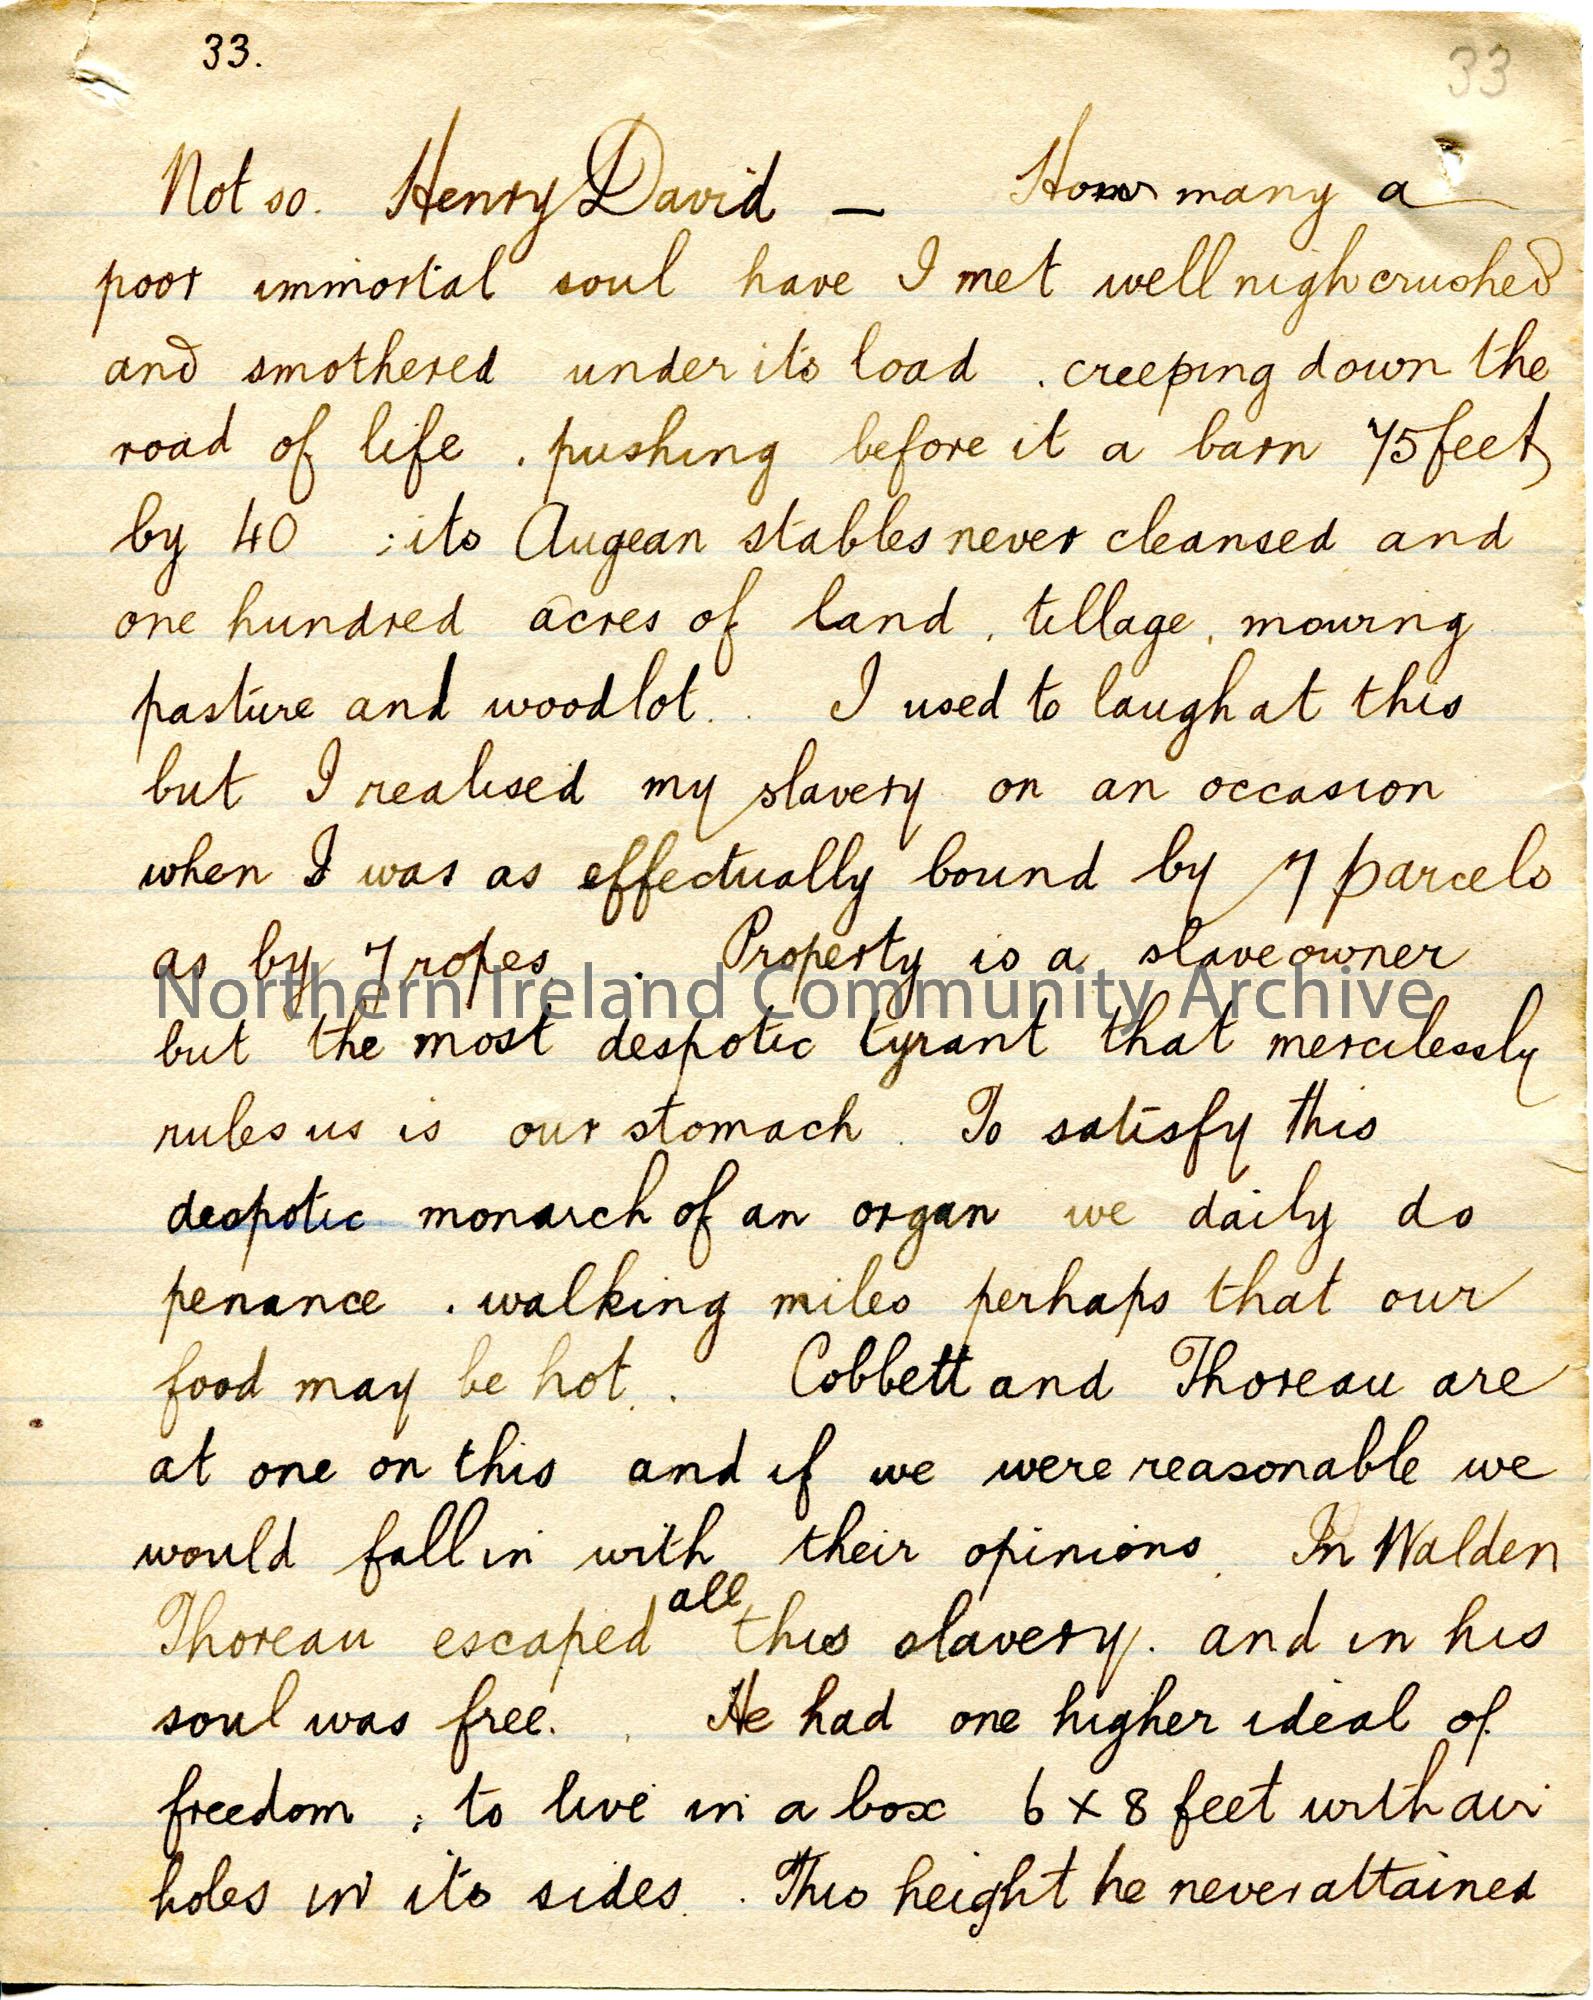 33.
33
Not so. Henry David — How many a
poor immortal soul have I met well nigh crushed
and smothered under its load . creeping down the
road of life . pushing before it a barn 75 feet
by 40 ; its Augean stables never cleansed and
one hundred acres of land , tillage , mowing
pasture and woodlot . . I used to laugh at this
but I realised my slavery on an occasion
when I was as effectually bound by 7 parcels
as by 7 ropes . Property is a slave owner
Northern Ireland Community Archive
but the most despotic tyrant that mercilessly
rules us is our stomach . To satisfy this
despotic monarch of an organ we daily do
penance . walking miles perhaps that our
food may be hot . . Cobbett and Thoreau are
at one on this and if we were reasonable we
would fall in with their opinions . In Walden
Thoreau escaped all this slavery . and in his
soul was free. . He had one higher ideal of
freedom ; to live in a box 6 x 8 feet with air
holes in its sides . . This height he never attained